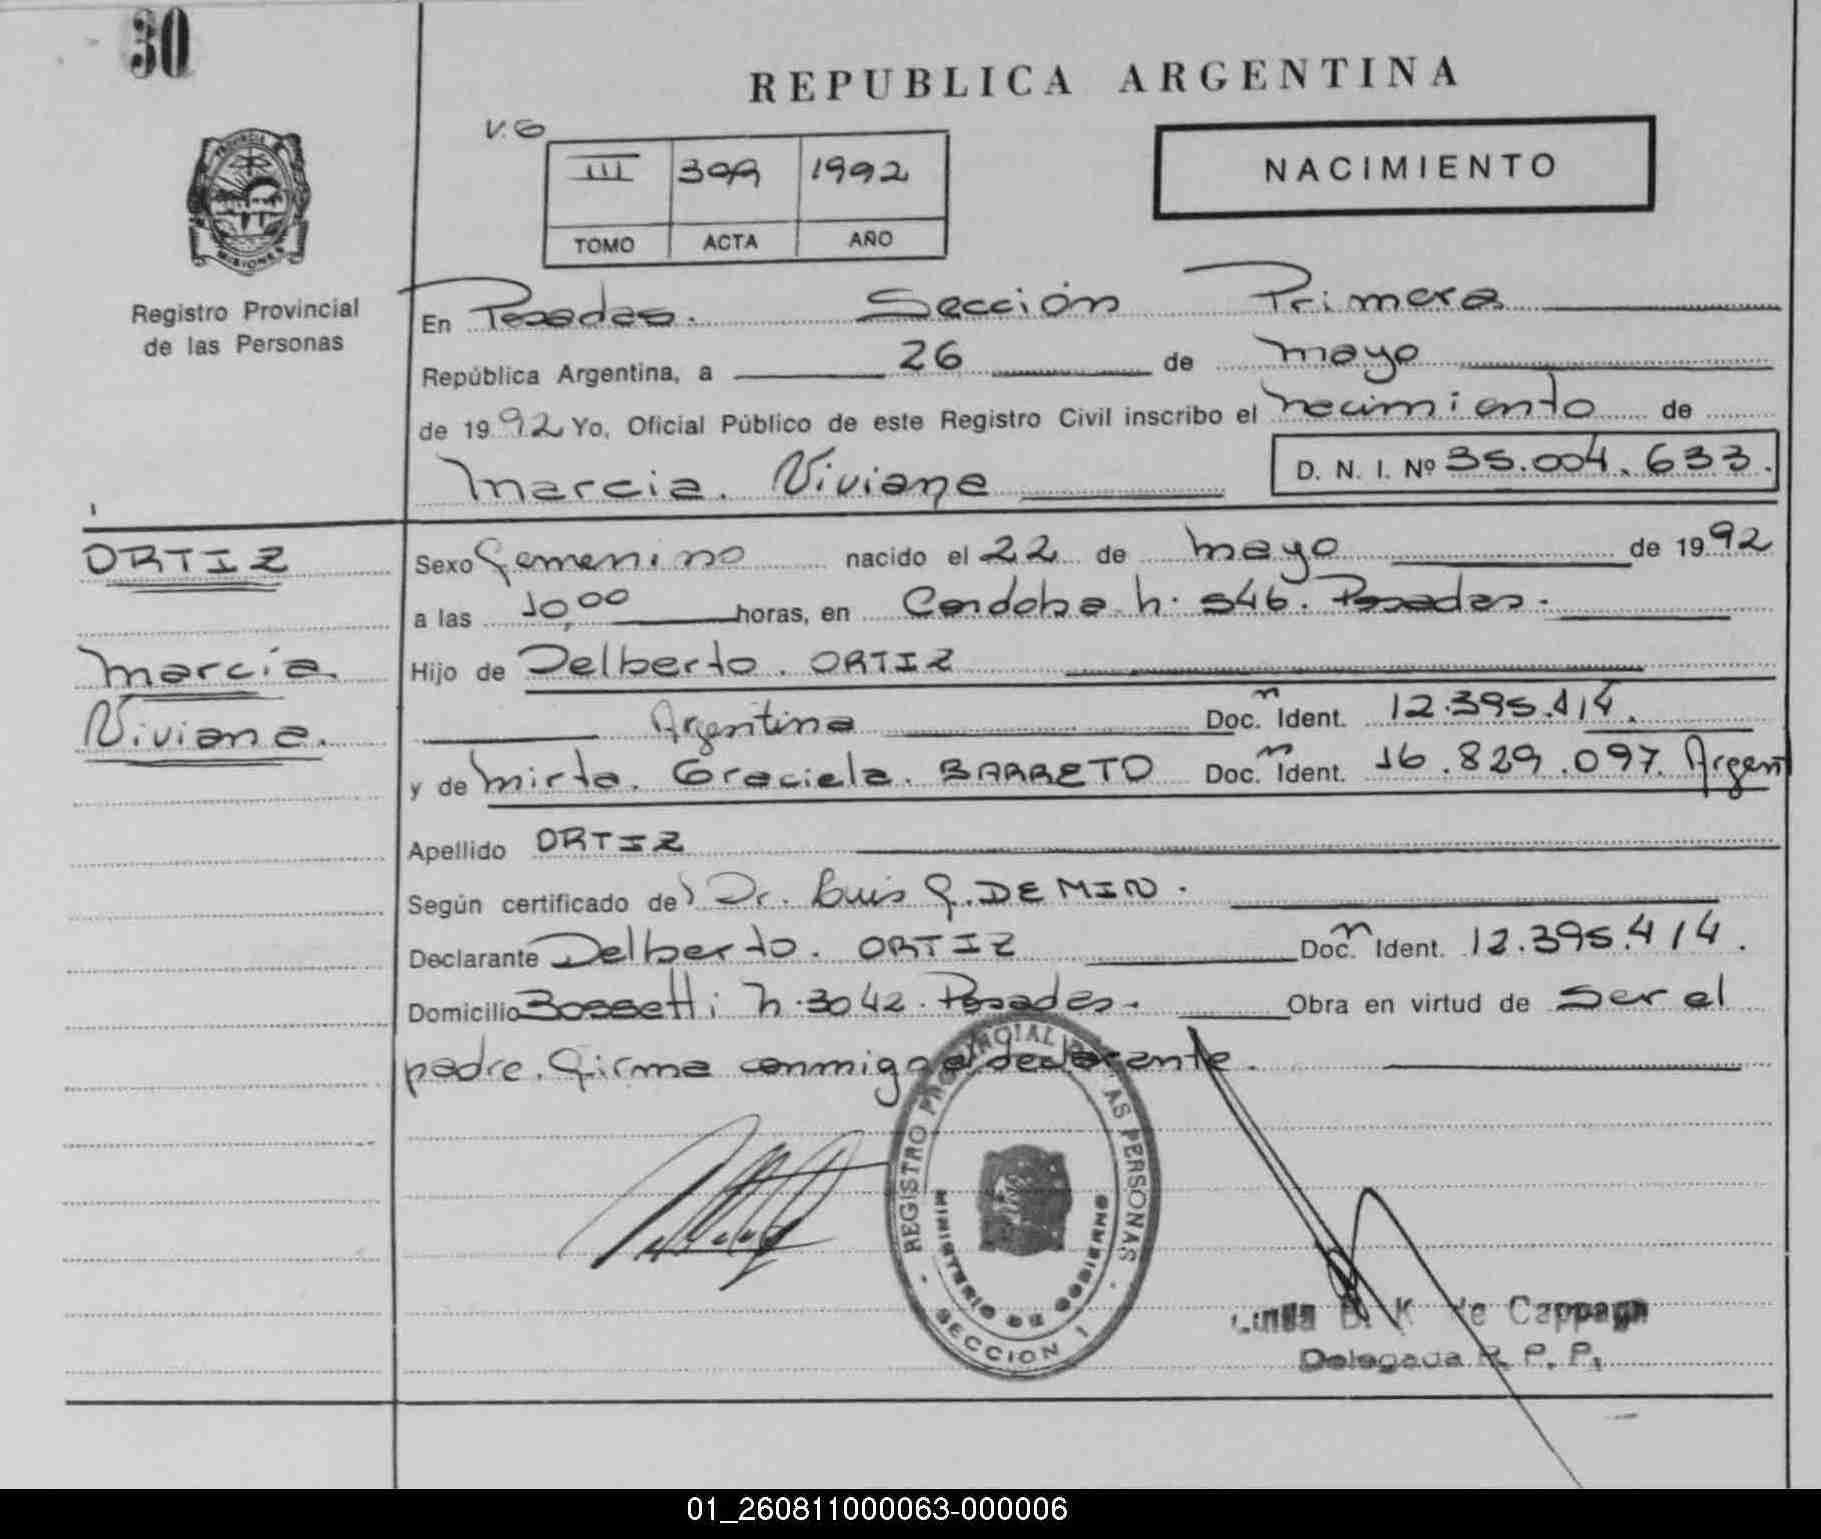 30
REPUBLICA ARGENTINA
V.G
III 399 1992
TOMO ACTA AÑO
NACIMIENTO
PROVINCIA
MISIONES
Registro Provincial
de las Personas
En Posadas. Sección Primera
República Argentina, a 26 de mayo
de 1992 Yo, Oficial Público de este Registro Civil inscribo el necimiento de
Marcia. Viviana D. N. I. Nº 35.004.633.
ORTIZ
Marcia.
Viviana.
Sexo femenino nacido el 22 de mayo de 1992
a las 10,00 horas, en Cordoba n. 546. Posadas.
Hijo de Delberto. ORTIZ
Argentina Doc.n Ident. 12.395.414.
y de Mirta. Graciela. BARRETO Doc.n Ident. 16.829.097. Argent
Apellido ORTIZ
Según certificado de Dr. Luis G. DE MIN.
Declarante Delberto. ORTIZ Doc.n Ident. 12.395.414.
Domicilio Bossetti n.3042. Posadas. Obra en virtud de ser el
padre. Firma conmigo el declarante.
REGISTRO PROVINCIAL DE LAS PERSONAS
MINISTERIO DE GOBIERNO
SECCION 1
B. K. de Cappagn
Delegada R. P. P.
01_260811000063-000006